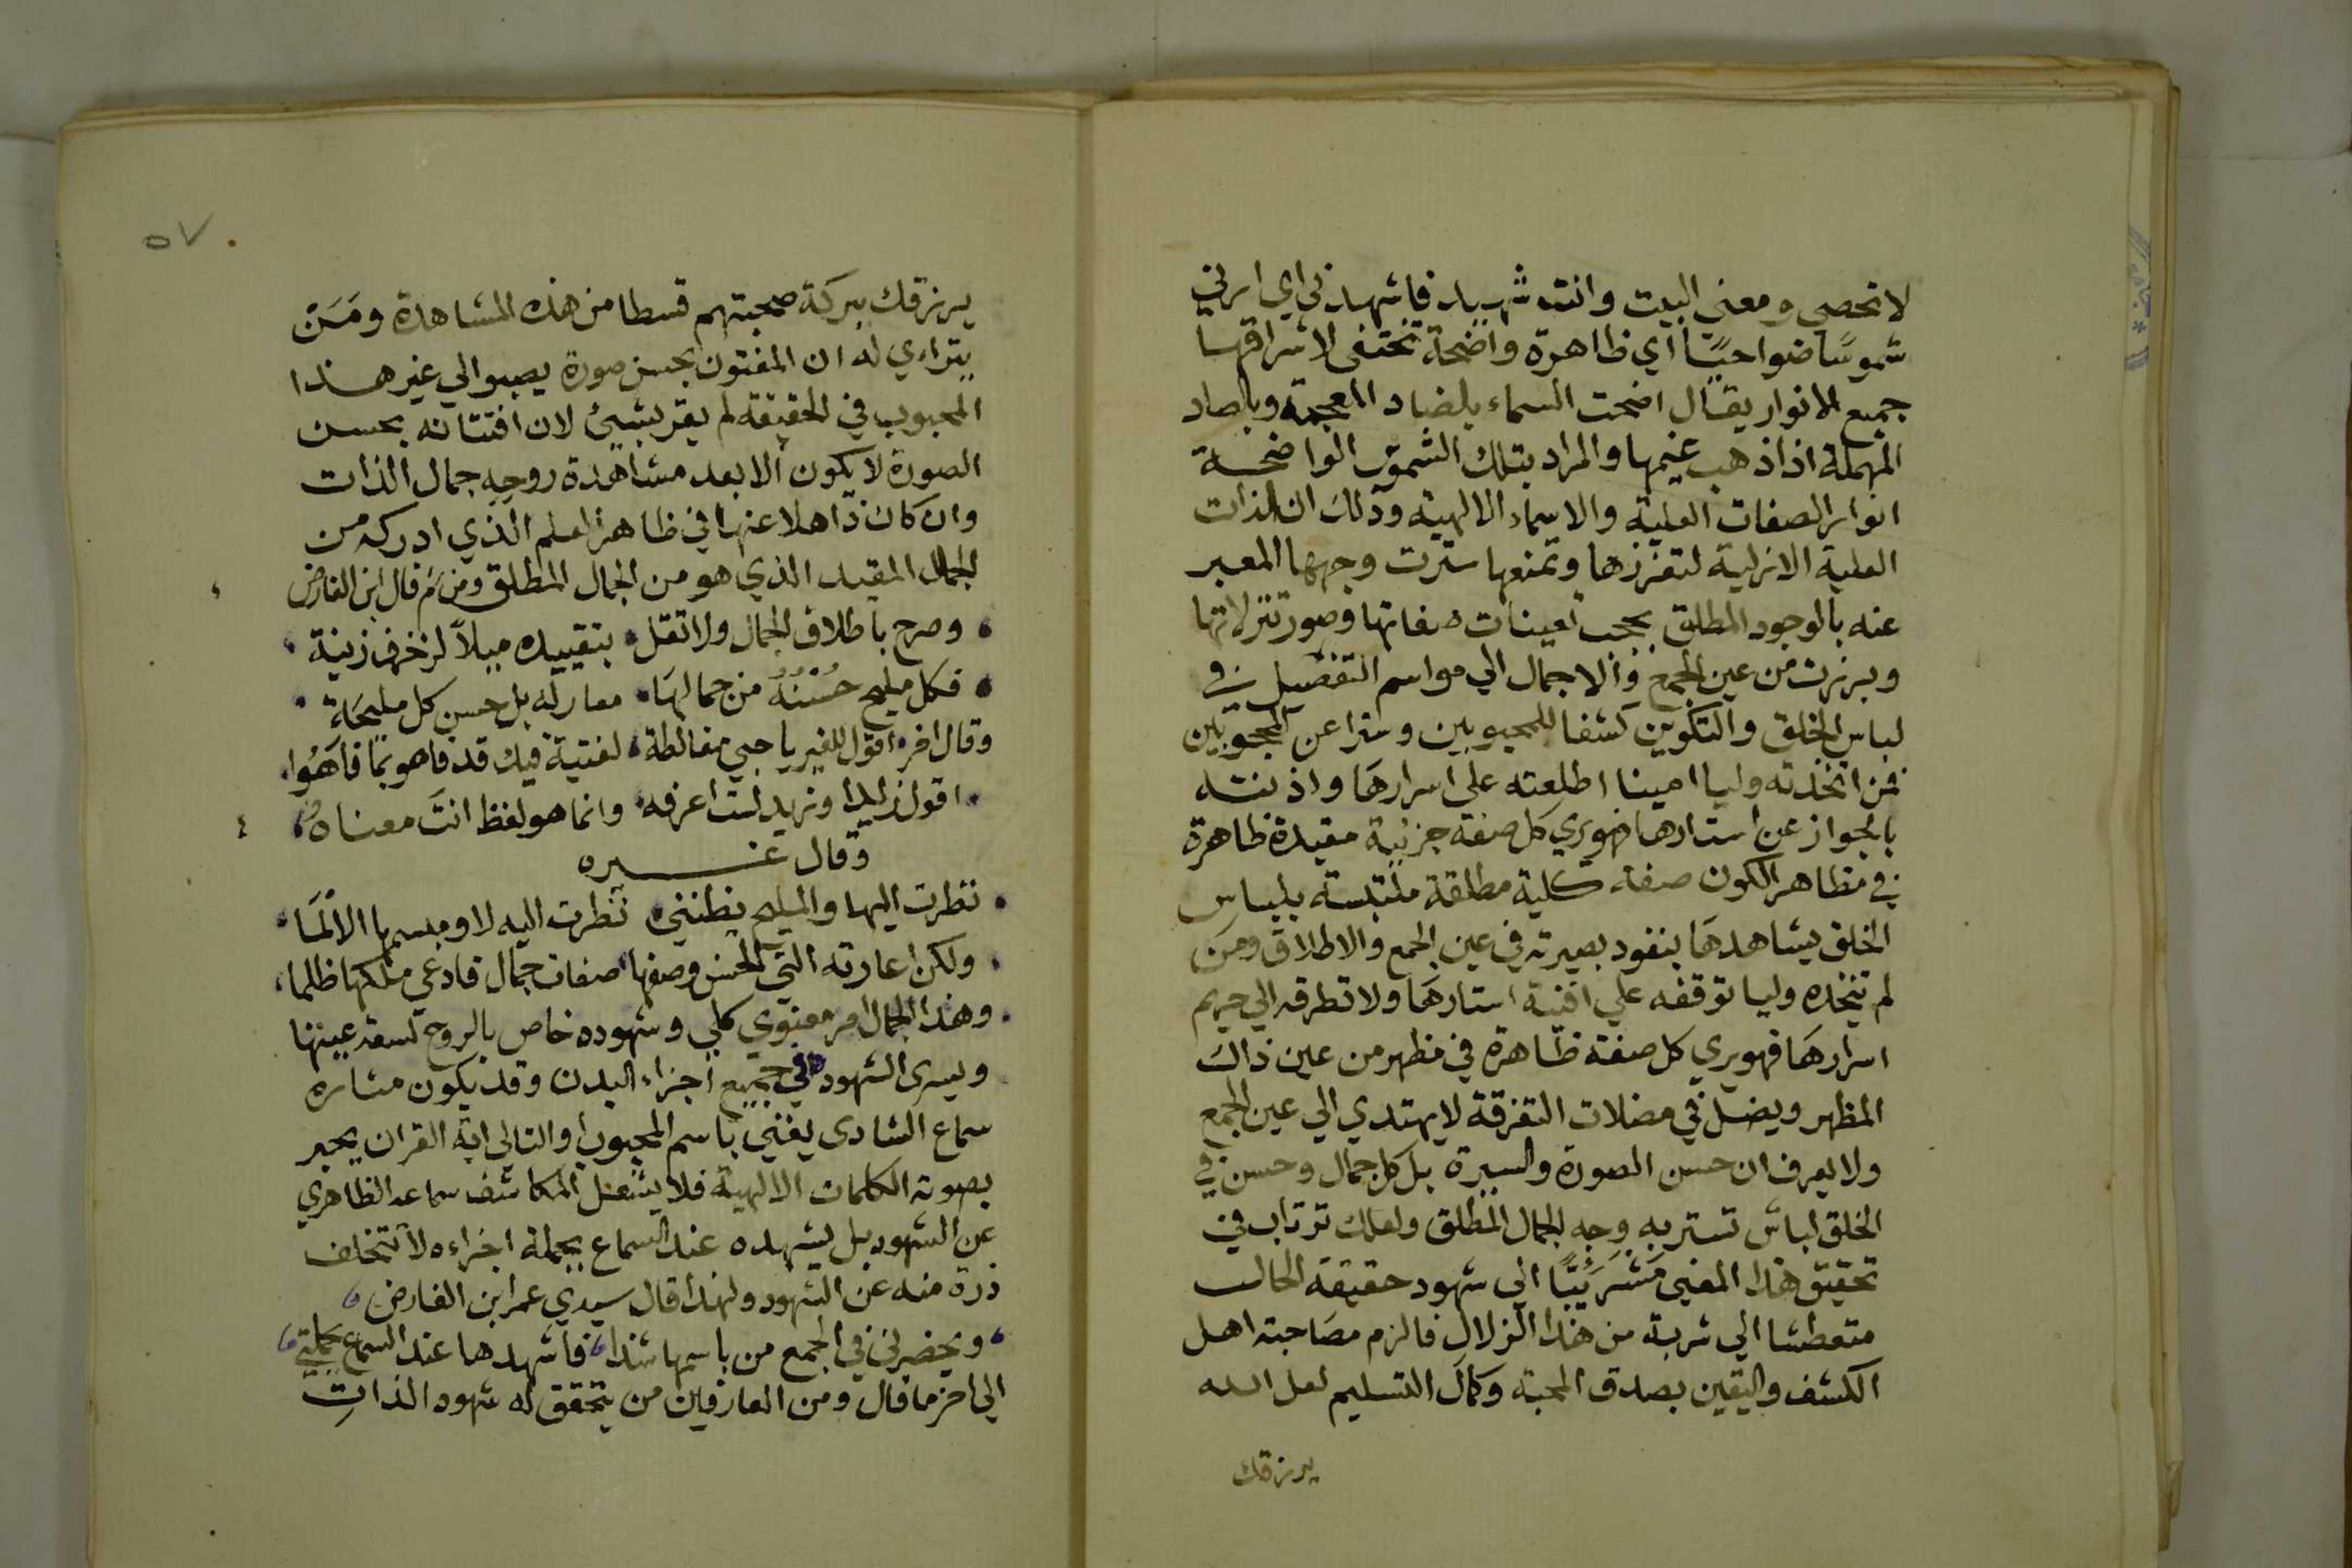 لا تحصى ومعنى البيت وانت شهيد فاشهدني اي ارني
شموسًا ضواحيًا اي ظاهرة واضحة تختفى لاشراقها
جميع الانوار يقال اضحت السماء بالضاد المعجمة وبالصاد
المهملة اذا ذهب غيمها والمراد بتلك الشموس الواضحة
انوار الصفات العلية والاسماء الالهية وذلك ان الذات
العلية الازلية لتعززها وتمنعها سترت وجهها المعبر
عنه بالوجود المطلق بحجب تعينات صفاتها وصور تنزلاتها
وبرزت من عين الجمع والاجمال الي مواسم التفصيل في
لباس الخلق والتكوين كشفا للمحبوبين وسترا عن المحجوبين
فمن اتخذته وليا امينا اطلعته على اسرارها واذنته
بالجواز عن استارها فهو يري كل صفة جزئية مقيدة ظاهرة
في مظاهر الكون صفة كلية مطلقة ملتبسة بلباس
الخلق يشاهدها بنفود بصيرته في عين الجمع والاطلاق ومن
لم تتخذه وليا توقفه علي افنية استارها ولا تطرقه الي حريم
اسرارها فهو يري كل صفة ظاهرة في مظهر من عين ذاك
المظهر ويضل في مضلات التفرقة لا يهتدي الي عين الجمع
ولا يعرف ان حسن الصورة والسيرة بل كل جمال وحسن في
الخلق لباس تستر به وجه الجمال المطلق ولعلك ترتاب في
تحقيق هذا المعنى الي شهود حقيقة الحال
متعطشا الي شربة من هذا الزلال فالزم مصاحبة اهل
الكشف واليقين بصدق المحبة وكمال التسليم لعل الله
يرزقك
٥٧
يرزقك ببركة صحبتهم قسطا من هذه المشاهدة ومَن
يتراءي له ان المفتون بحسن صورة يصبوا الي غير هذا
المحبوب في الحقيقة لم يقر بشيئ لان افتتانه بحسن
الصورة لا يكون الا بعد مشاهدة روحه جمال الذات
وان كان ذاهلا عنها في ظاهر العلم الذي ادركه من
الجمال المقيد الذي هو من الجمال المطلق ومن ثم قال ابن الفارض
وصرح باطلاق الجمال ولا تقل بتقييده ميلاً لزخرف زينة
فكل مليح حُسْنُهُ من جمالها معار له بل حسن كل مليحة
وقال اخر اقول للغير يا حبي مغالطة لفتية فيك قد فاهو بما فاهوا
اقول زيدا وزيد لست اعرفه وانما هو لفظ انت معناه
وقال غيره
نظرت اليها والمليح يظنني نظرت اليه لا ومبسمها الالما
ولكن اعارته التي الحسن وصفها صفات جمال فادعي ملكها ظلما
وهذا الجمال امر معنوي كلي وشهوده خاص بالروح عينها
ويسرى الشهود في جميع اجزاء البدن وقد يكون مثاره
سماع الشادى يغني باسم المحبوب او التالى اية القران يخبر
بصوته الكلمات الالهية فلا يشغل المكاشف سماعه الظاهري
عن الشهود بل يشهده عند السماع بجملة اجزاءه لا تتخلف
ذرة منه عن الشهود ولهذا قال سيدي عمر ابن الفارض
ويحضرني في الجمع من باسمها شدا فاشهدها عند السماع بجملتي
الي اخر ما قال ومن العارفين من يتحقق له شهود الذات